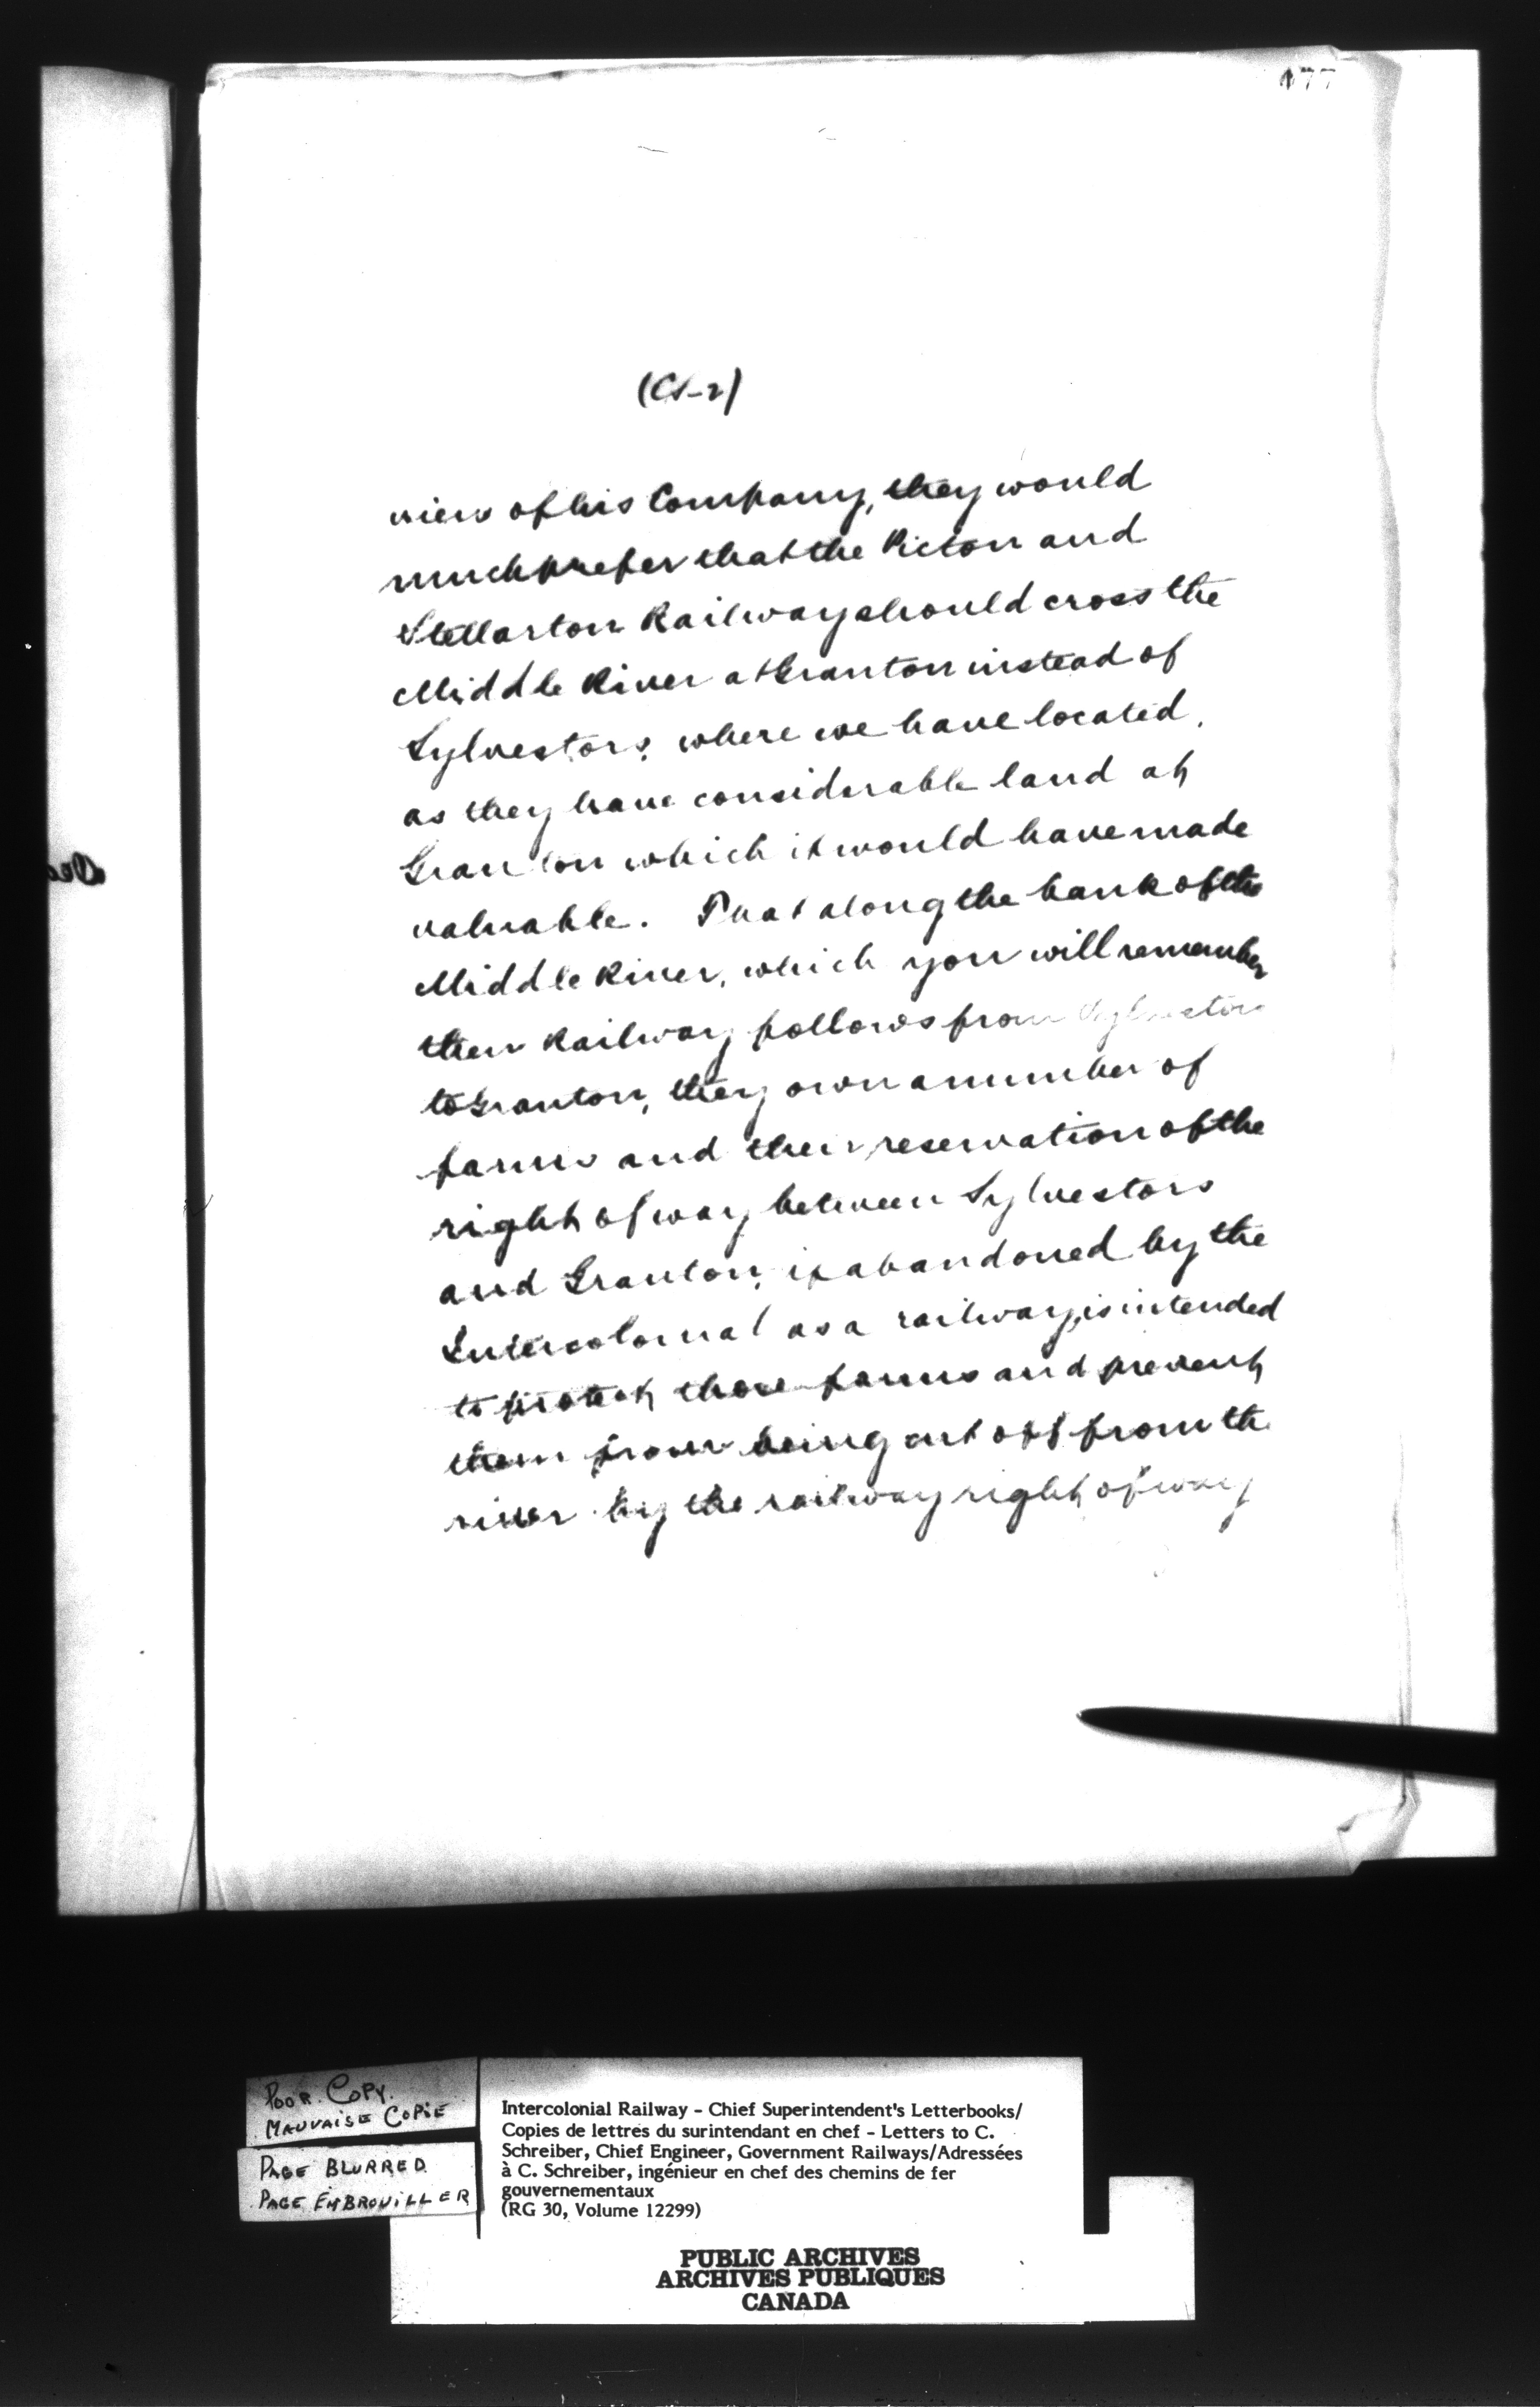 477
(CS-2)
view of his Company, they would
much prefer that the Pictou and
Stellarton Railway should cross the
Middle River at Granton instead of
Sylvestors, where we have located,
as they have considerable land at
Granton which it would have made
valuable. That along the bank of the
Middle River, which you will remember
their Railway follows from Sylvestors
to Granton, they own a number of
farms and their reservation of the
right of way between Sylvestors
and Granton, if abandoned by the
Intercolonial as a railway, is intended
to protect those farms and prevent
them from being cut off from the
river by the railway right of way
POOR COPY.
MAUVAISE COPIE
PAGE BLURRED
PAGE EMBROUILLER
Intercolonial Railway - Chief Superintendent's Letterbooks/
Copies de lettres du surintendant en chef - Letters to C.
Schreiber, Chief Engineer, Government Railways/Adressées
à C. Schreiber, ingénieur en chef des chemins de fer
gouvernementaux
(RG 30, Volume 12299)
PUBLIC ARCHIVES
ARCHIVES PUBLIQUES
CANADA